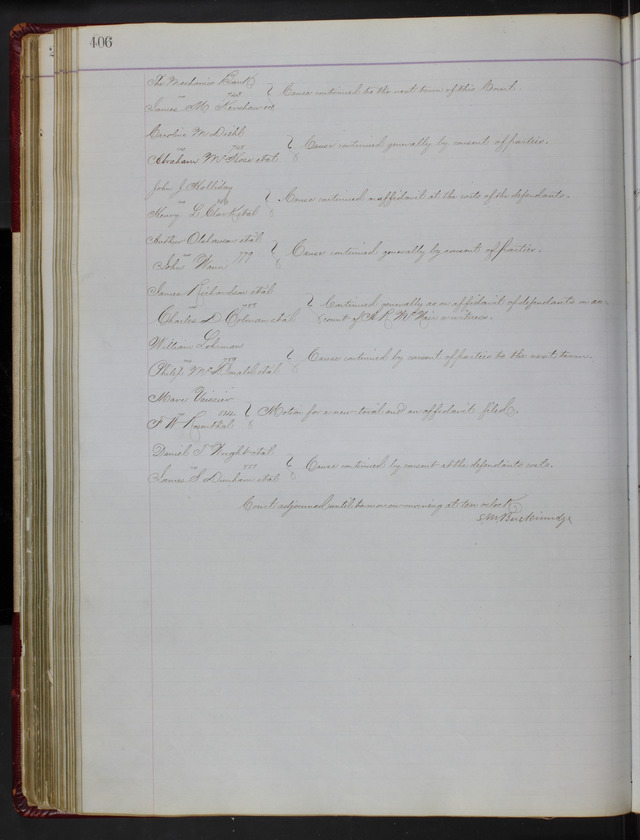 406
The Mechanics Bank
vs
James M Kershaw
Cause continued to the next term of this Court.
Caroline M Diehl
vs
Abraham McKose et al
Cause continued generally by consent of parties.
John J Holliday
vs
Henry L Clark et al
Cause continued on affidavit at the costs of the defendants.
Arthur Olshausen et al
vs 779
John Wann
Cause continued generally by consent of parties.
James Richardson et al
vs
Charles D Colman et al
Continued generally as on affidavit of defendants on ac-
count of McNair a witness.
William Lohman
vs
Philip McDonald et al
Cause continued by consent of parties to the next term.
vs
Rosenthal
Motion for a new trial and an affidavit filed.
Daniel T Wright et al
vs
James S Dunham et al
Cause continued by consent at the defendants costs.
Court adjourned until tomorrow morning at ten oclock
S. M. Breckinridge